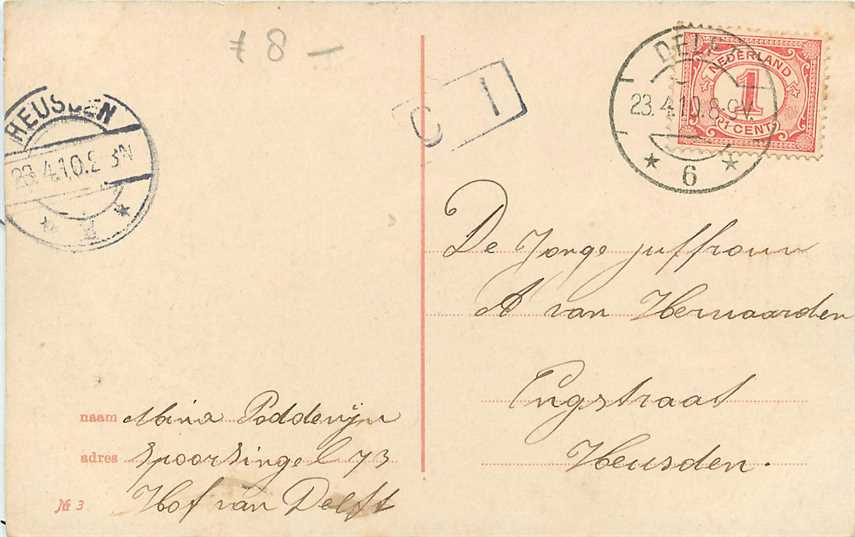 ≠ 8 –
HEUSDEN
23.4.10.
C 1
DEL
23.4.10.8-9V.
6
NEDERLAND
1
CENT
De Jonge juffrouw
A van Herwaarden
Engstraat
Heusden.
naam Maria Poddewijn
adres Spoorsingel 73
Hof van Delft
№ 3